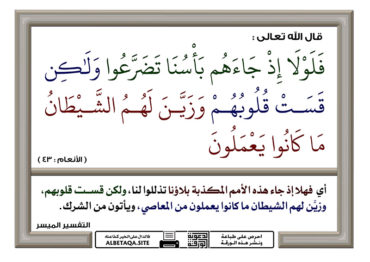 قال الله تعالى :
فَلَوْلَا إِذْ جَاءَهُم بَأْسُنَا تَضَرَّعُوا وَلَٰكِن
قَسَتْ قُلُوبُهُمْ وَزَيَّنَ لَهُمُ الشَّيْطَانُ
مَا كَانُوا يَعْمَلُونَ
( الأنعام : ٤٣ )
أي فهلا إذ جاء هذه الأمم المكذبة بلاؤنا تذللوا لنا، ولكن قست قلوبهم،
وزيَّن لهم الشيطان ما كانوا يعملون من المعاصي، ويأتون من الشرك.
التفسير الميسر
احرص على طباعة
ونشر هذه الورقة
فالدال على الخير كفاعله
ALBETAQA.SITE